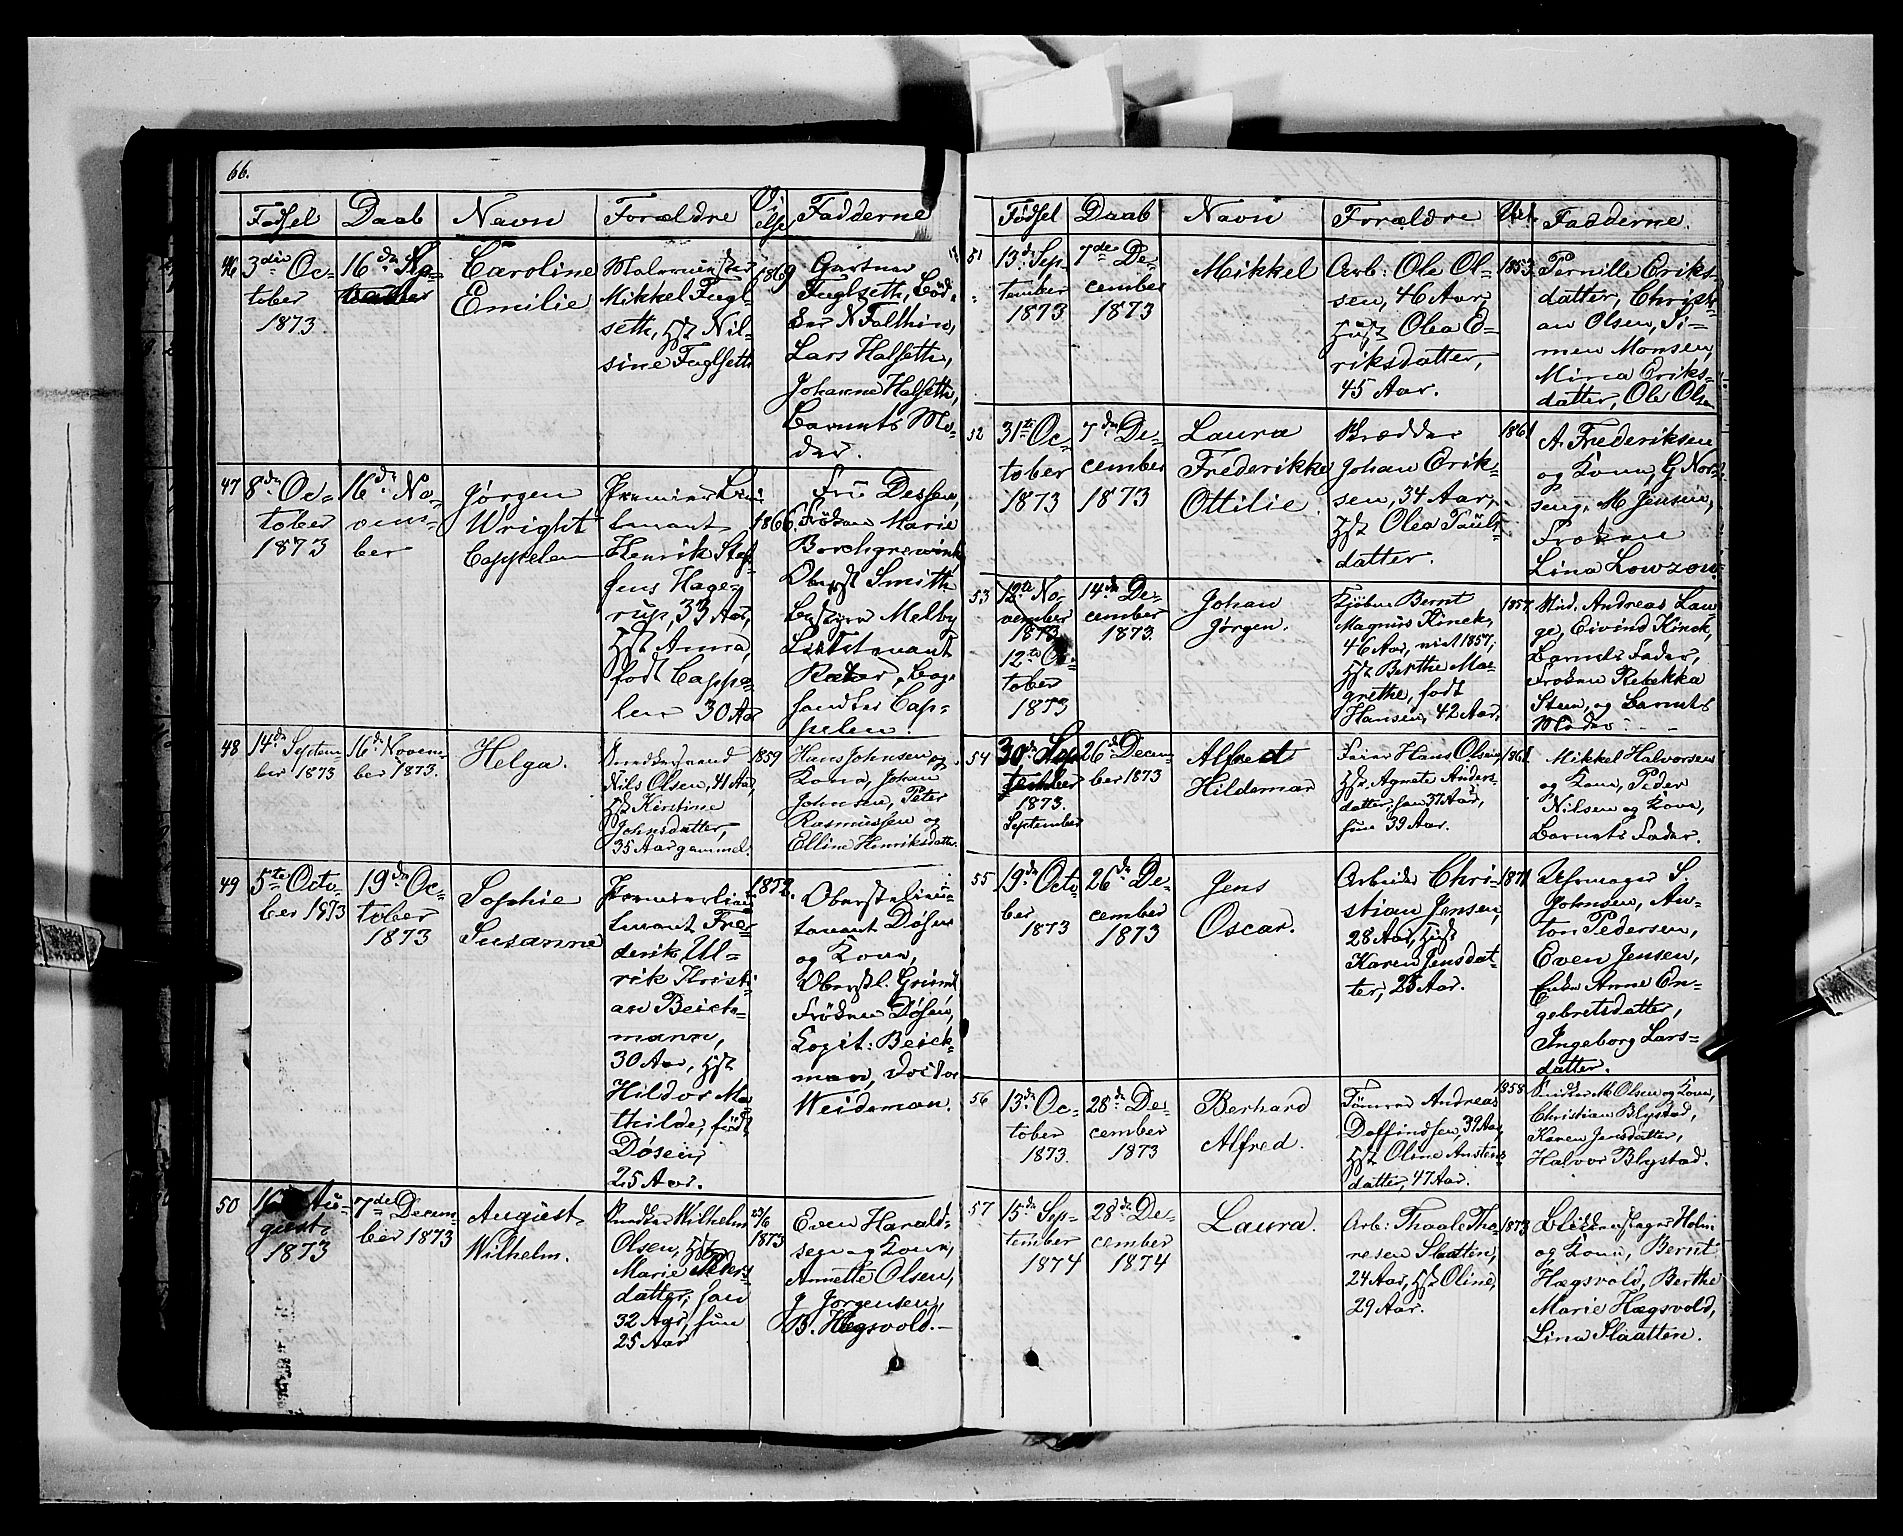 66.
Fødsel Daab Navn Forældre Vielse Fadderne
46 3die Oc-
tober
1873
16de Sep-
Caroline
Emilie
Malermester
Mikkel Fugl-
seth, Hst Nil-
sine Fuglseth
1869
Gartner
Fuglseth, Bød-
ker N Falthin,
Lars Halseth,
Johanne Halseth,
Barnets Mo-
der.
47 8de Oc-
tober
1873
16de No-
vem-
ber
Jørgen
Wright
Cappelen
Premierleu-
tenant
Henrik Stef-
fens Hage-
rup, 33 Aar,
Hst Anna,
født Cappe-
len 30 Aar
1866.
Fru Dessen,
Frøken Marie
Borchgrevink,
Oberst Smith
Melby
Leutenant
Cap-
pelen.
48 14de Septem-
ber 1873
16de Novem-
ber 1873.
Helga.
Snedkersvend
Nils Olsen, 41 Aar,
Hst Kirstine
Johnsdatter,
35 Aar gammel.
1859
Hans Johnsen og
Kone, Johan
Johnsen, Peter
Rasmussen og
Elline Henriksdatter
49 5te Octo-
ber 1873
19de Oc-
tober
1873
Sophie
Susanne
Premierlieu-
tenant Fre-
derik Ul-
rik Kristi-
an Beich-
mann,
30 Aar, Hst
Hildor Ma-
thilde, født
Døsen,
25 Aar.
1872.
Oberstlieu-
tenant Døsen
og Kone,
Oberstl. Grimm
Frøken Døsen,
Beich-
man, Doctor
Weideman.
50 16 Au-
gust
1873
7de Decem-
ber 1873
August
Wilhelm.
Snedker Wilhelm
Olsen, Hst
Marie Peders-
datter, han
32 Aar, hun
25 Aar
23/6
1873
Even Harald-
sen og Kone,
Annette Olsen,
J Jørgensen,
B. Hægsvold.
Fødsel Daab Navn Forældre Viet Fadderne.
51 13de Sep-
tember
1873
7de De-
cember
1873
Mikkel
Arb: Ole Ol-
sen, 46 Aar,
Hust Olea E-
riksdatter,
45 Aar.
1853
Pernille Eriks-
datter, Christi-
an Olsen, Si-
men Monsen,
Mina Eriks-
datter, Ole Olsen
52 31te Oc-
tober
1873
7de De-
cember
1873
Laura
Frederikke
Ottilie.
Skrædder
Johan Erik-
sen, 34 Aar,
Hst Olea Pauls-
datter.
1861
A. Frederiksen
og Kone, G Nor-
seng, M Jensen,
Frøken
Lina Lowzow.
53 12te No-
vember
1873
12te Oc-
tober
1873
14de De-
cember
1873.
Johan
Jørgen.
Kjøbm Bernt
Magnus Kinck,
46 Aar, viet 1857,
Hst Berthe Mar-
grethe, født
Hansen, 42 Aar,
1857
Stud. Andreas Lan-
ge, Eivind Kinck,
Barnets Fader,
Frøken Rebekka
Steen, og Barnets
Moder.
54 30de Sep-
tember
1873.
September
26de Decem-
ber 1873
Alfred
Hildemar
Feier Hans Olsen,
Hst. Agnete Anders-
datter, han 37 Aar,
hun 39 Aar.
1861
Mikkel Halvorsen
og Kone, Peder
Nilsen og Kone,
Barnets Fader.
55 19de Octo-
ber
1873
26de De-
cember
1873
Jens
Oscar.
Arbeider Chri-
stian Jensen,
28 Aar, Hust
Karen Jensdat-
ter, 28 Aar.
1871
Uhrmager S
Johnsen, An-
ton Pedersen,
Even Jensen,
Enke Anne En-
gebretsdatter,
Ingeborg Lars-
datter.
56 13de Oc-
tober
1873.
28de De-
cember
1873
Berhard
Alfred.
Tømrer Andreas
Dolfindsen, 39 Aar,
Hst Oline Austens-
datter, 47 Aar.
1858
Snidker M Olsen og Kone,
Christian Blystad,
Karen Jensdatter,
Halvor Blystad.
57 15de Sep-
tember
1874
28de De-
cember
1874
Laura.
Arb: Thoale Tho-
resen Slaatten,
24 Aar, Hst Oline,
29 Aar.
1873
Blikkenslager Holm
og Kone, Bernt
Hægsvold, Berthe
Marie Hægsvold,
Lina Slaatten.